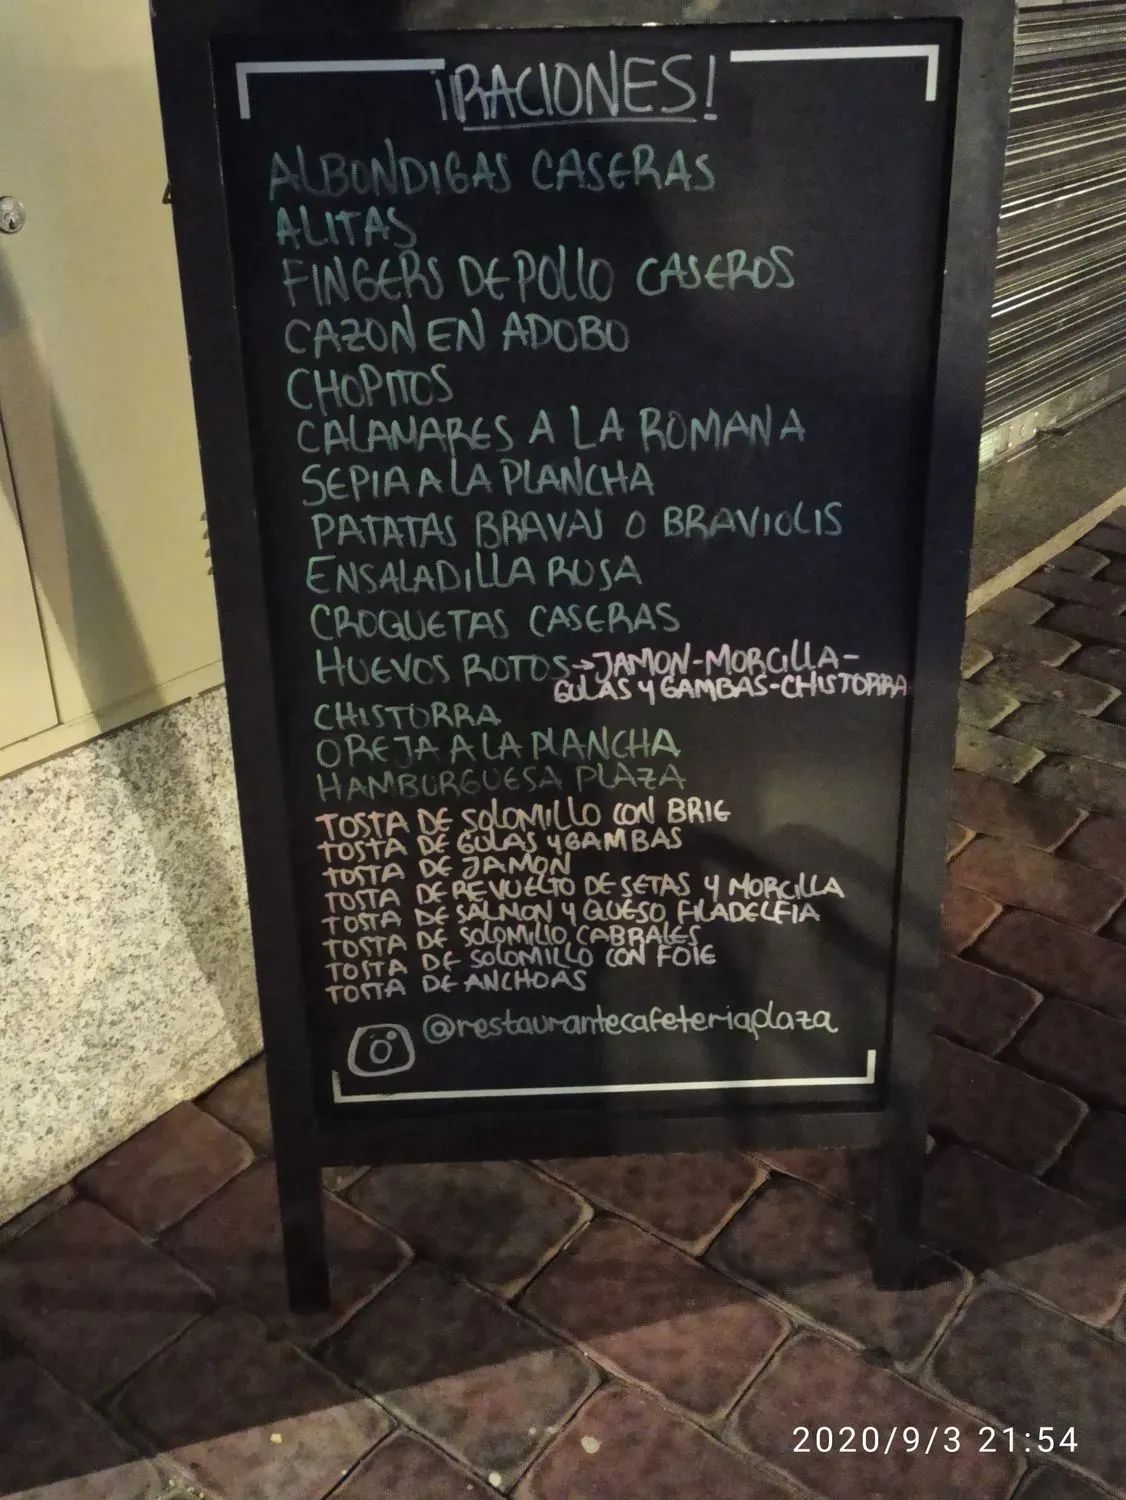 ¡RACIONES!
ALBONDIGAS CASERAS
ALITAS
FINGERS DE POLLO CASEROS
CAZON EN ADOBO
CHOPITOS
CALAMARES A LA ROMANA
SEPIA A LA PLANCHA
PATATAS BRAVAS O BRAVIOLIS
ENSALADILLA RUSA
CROQUETAS CASERAS
HUEVOS ROTOS→JAMON-MORCILLA-
GULAS Y GAMBAS-CHISTORRA
CHISTORRA
OREJA A LA PLANCHA
HAMBURGUESA PLAZA
TOSTA DE SOLOMILLO CON BRIE
TOSTA DE GULAS Y GAMBAS
TOSTA DE JAMON
TOSTA DE REVUELTO DE SETAS Y MORCILLA
TOSTA DE SALMON Y QUESO FILADELFIA
TOSTA DE SOLOMILLO CABRALES
TOSTA DE SOLOMILLO CON FOIE
TOSTA DE ANCHOAS
@restaurantecafeteriaplaza
2020/9/3 21:54